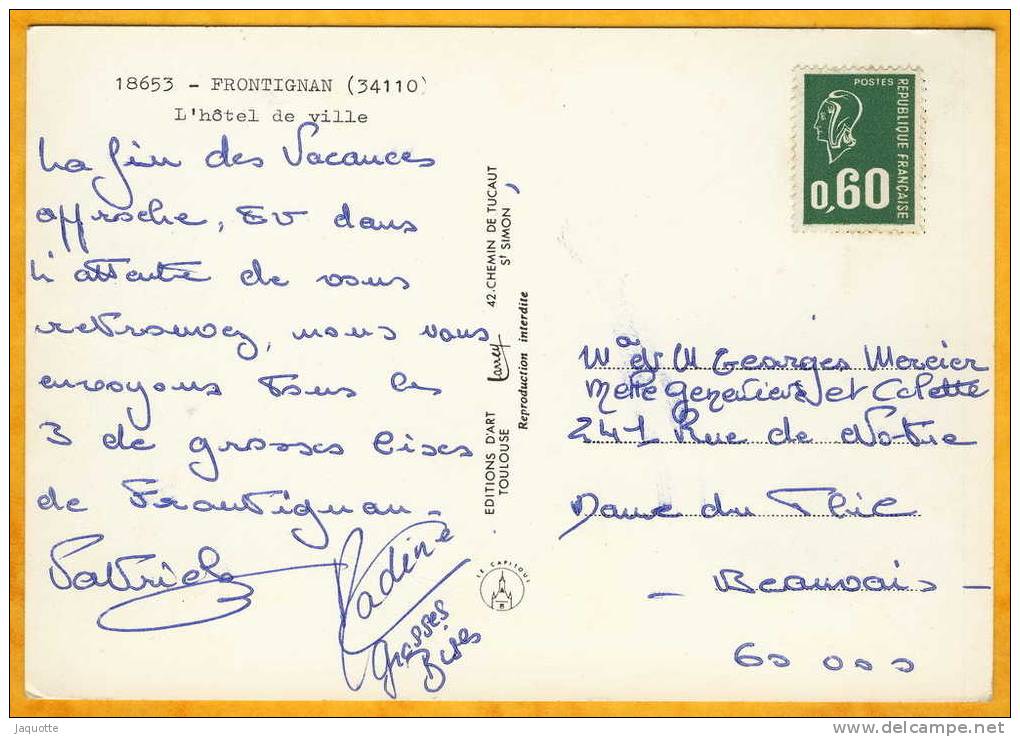 18653 - FRONTIGNAN (34110)
L'hôtel de ville
La fin des Vacances
approche, Et dans
L'attente de vous
retrouvez, nous vous
envoyons tous les
3 de grosses bises
de Frontignan.
Patrick
Nadine
grosses
Bises
EDITIONS D'ART Larrey 42.CHEMIN DE TUCAUT
TOULOUSE ST SIMON
Reproduction interdite
LE CAPITOUL
POSTES
REPUBLIQUE FRANÇAISE
0,60
Georges Mercier
Melle Geneviève et Colette
241 Rue de Notre
Dame du Thil
- Beauvais -
60 000
jaquotte
http://www.delcampe.net